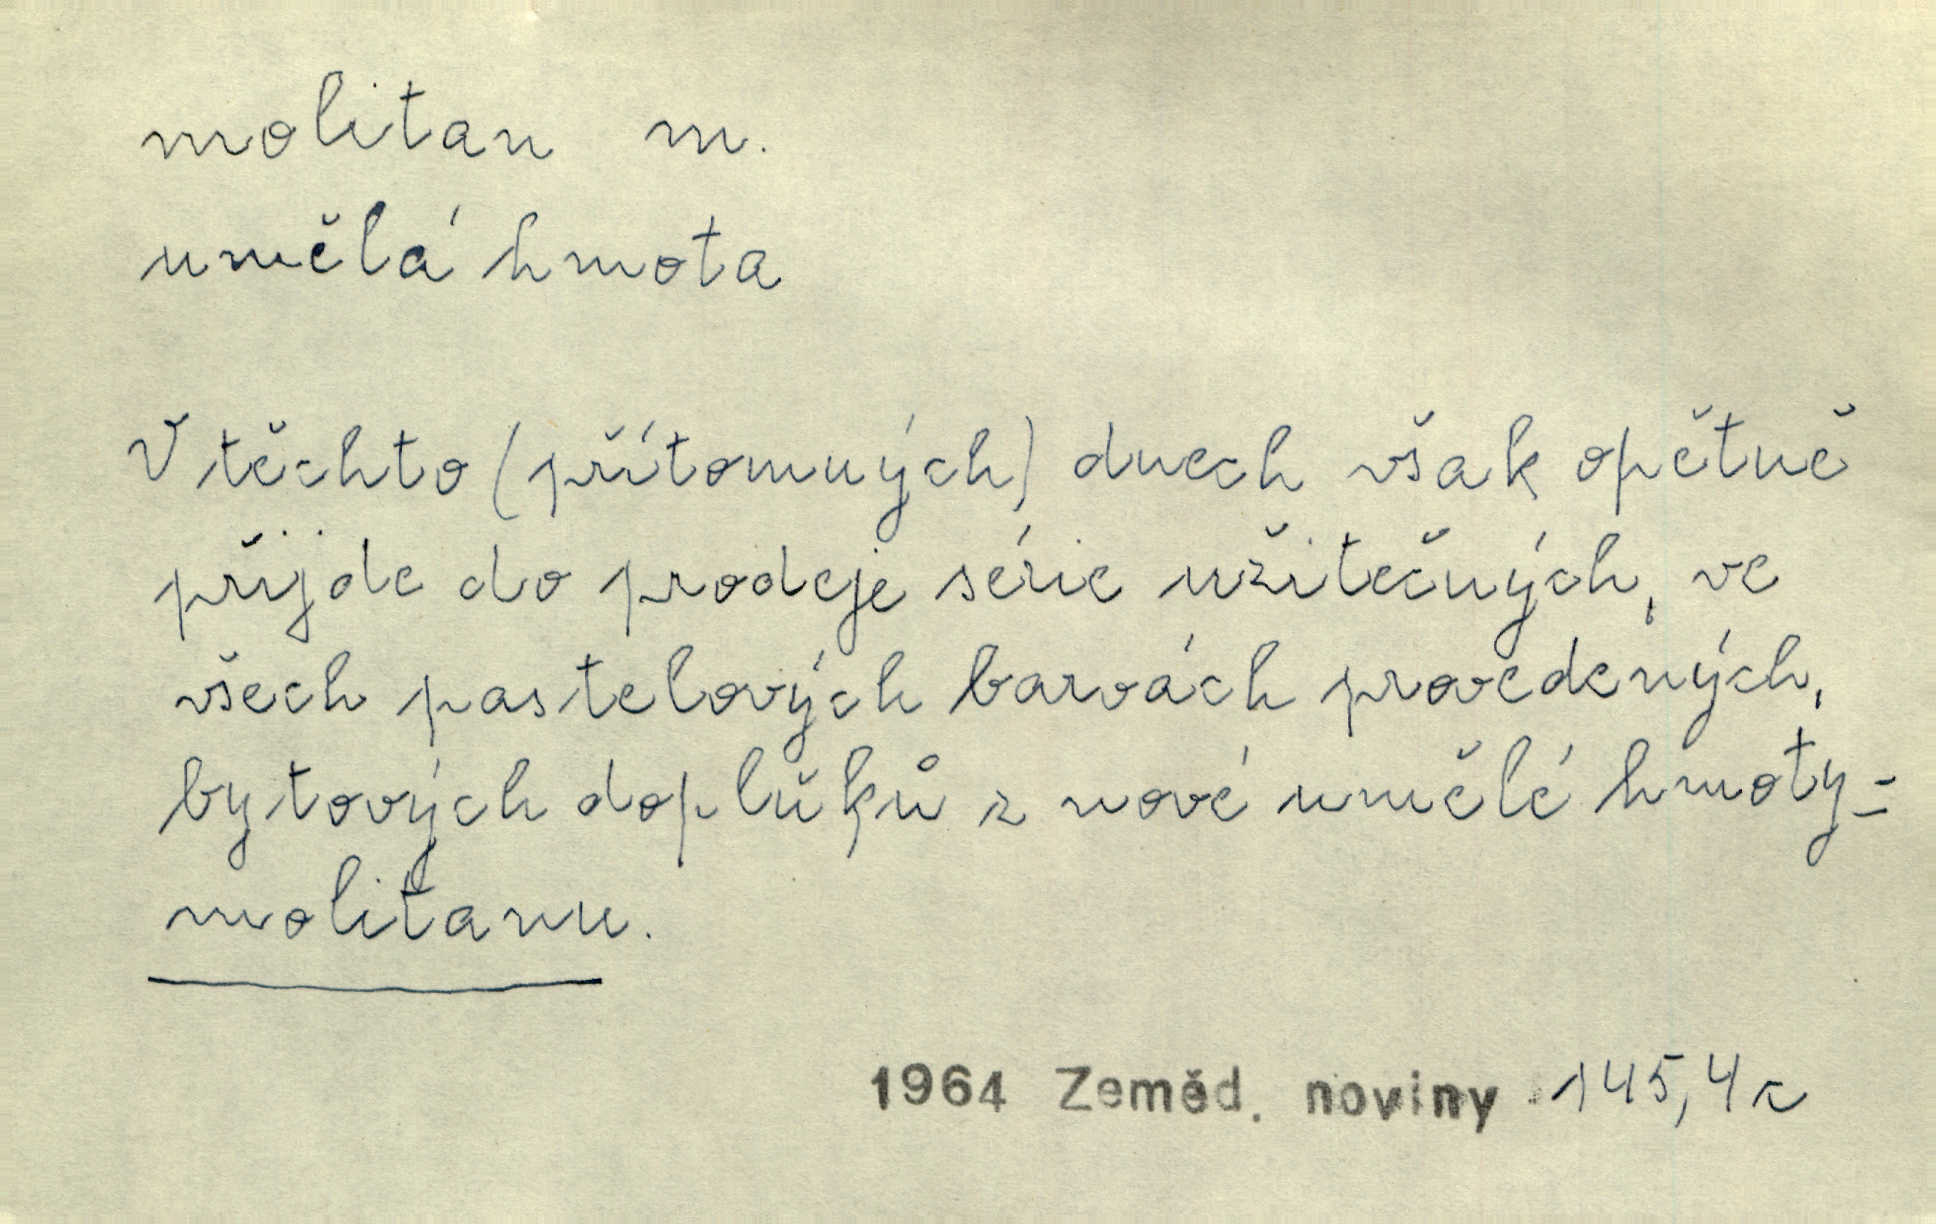 molitan m.
umělá hmota
V těchto (přítomných) dnech však opětně
přijde do prodeje série užitečných, ve
všech pastelových barvách provedených,
bytových doplňků z nové umělé hmoty =
molitanu.
1964 Zeměd. noviny 145, 4